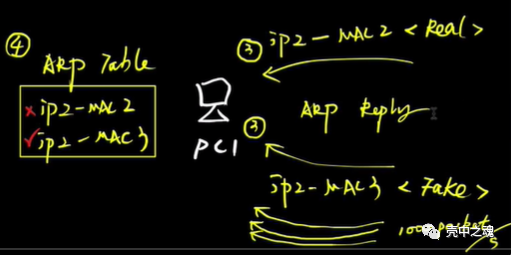 ④
ARP Table
× ip2-MAC2
✓ ip2-MAC3
PC1
③ ip2-MAC2 <Real>
ARP Reply
③
ip2-MAC3 <Fake>
壳中之魂